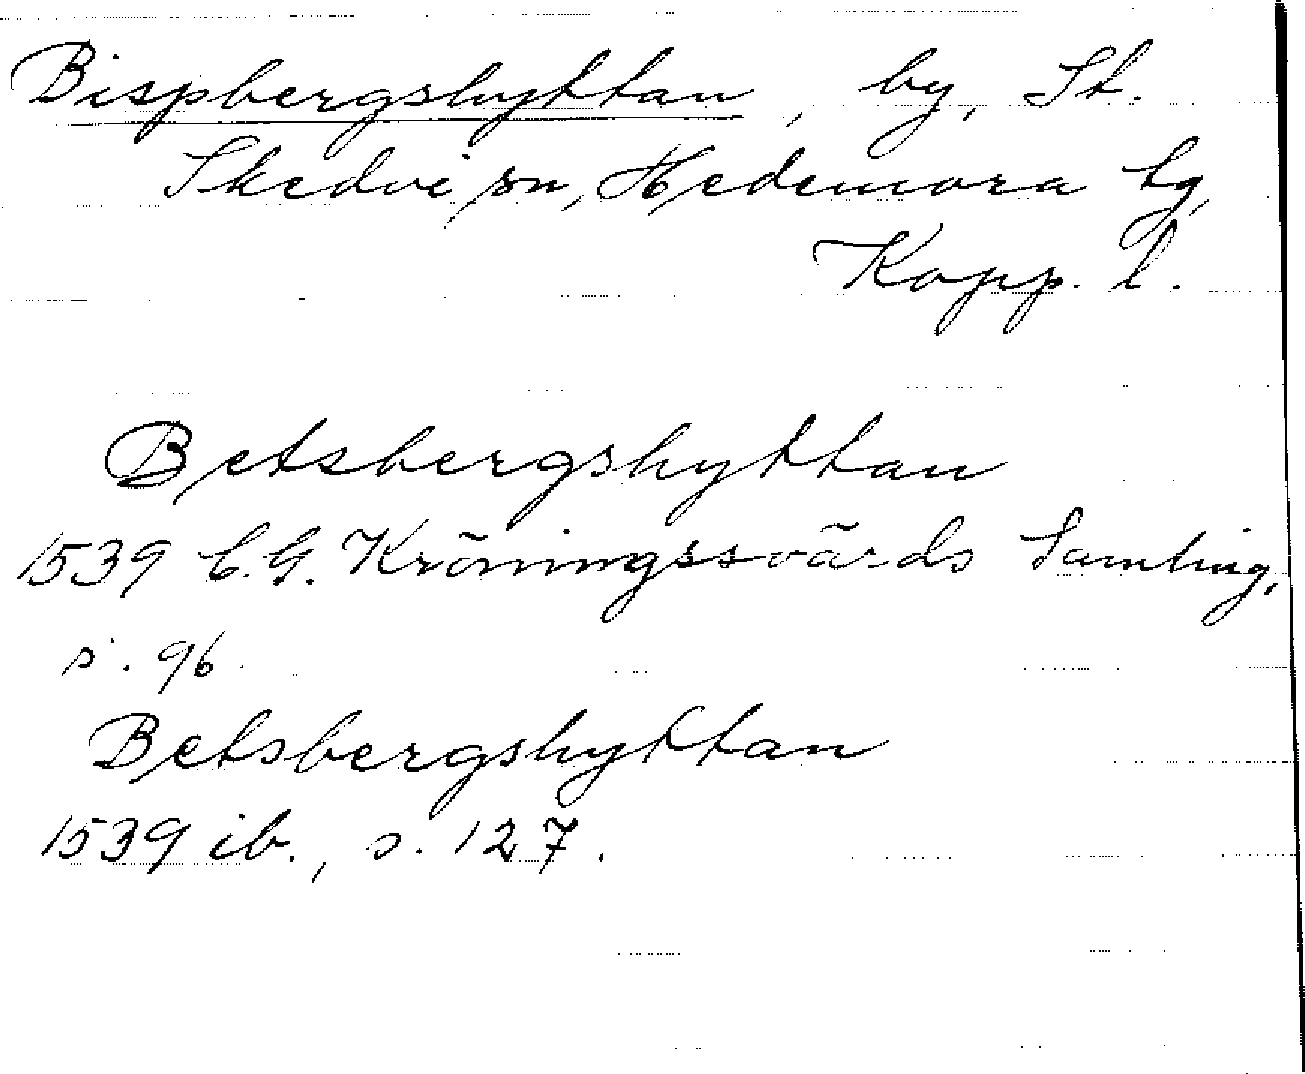 Bispbergshyttan, by, St.
Skedvi sn, Hedemora tg,
Kopp. l.
Betsbergshyttan
1539 C.G. Kröningssvärds Samling,
s. 96.
Betsbergshyttan
1539 ib., s. 127.